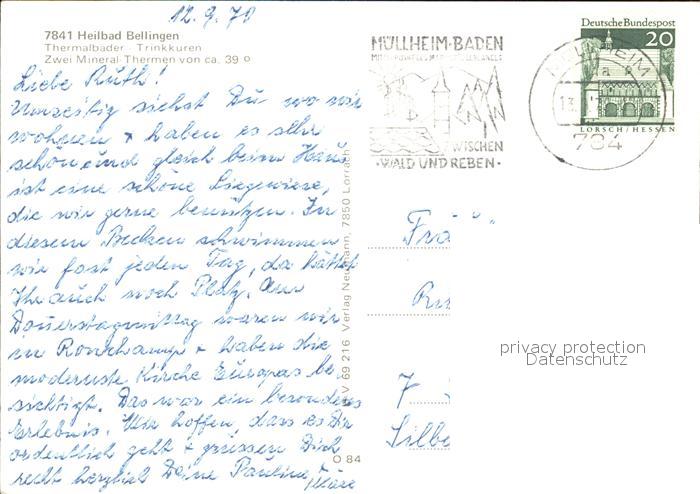 12.9.70
7841 Heilbad Bellingen
Thermalbäder - Trinkkuren
Zwei Mineral-Thermen von ca. 39 º
Liebe Ruth!
siehst Du wo wir
wohnen + haben es sehr
schön und gleich beim Haus
ist eine schöne Liegewiese,
die wir gerne benützen. In
diesem Becken schwimmen
wir fast jeden Tag, da hättet
Ihr auch noch Platz. Am
Donerstagmittag waren wir
in Ronchamp + haben die
modernste Kirche Europas be
sichtigt. Das war ein besonderes
Erlebnis. Wir hoffen, dass es Dir
ordentlich geht + grüssen Dich
recht herzlich Deine Pauline
MÜLLHEIM-BADEN
ZWISCHEN
·WALD UND REBEN·
Deutsche Bundespost
20
LORSCH/HESSEN
MÜLLHEIM
13.
784
Verlag Neumann, 7850 Lörrach
V 69 216
O 84
Frä
7
Silbe
privacy protection
Datenschutz